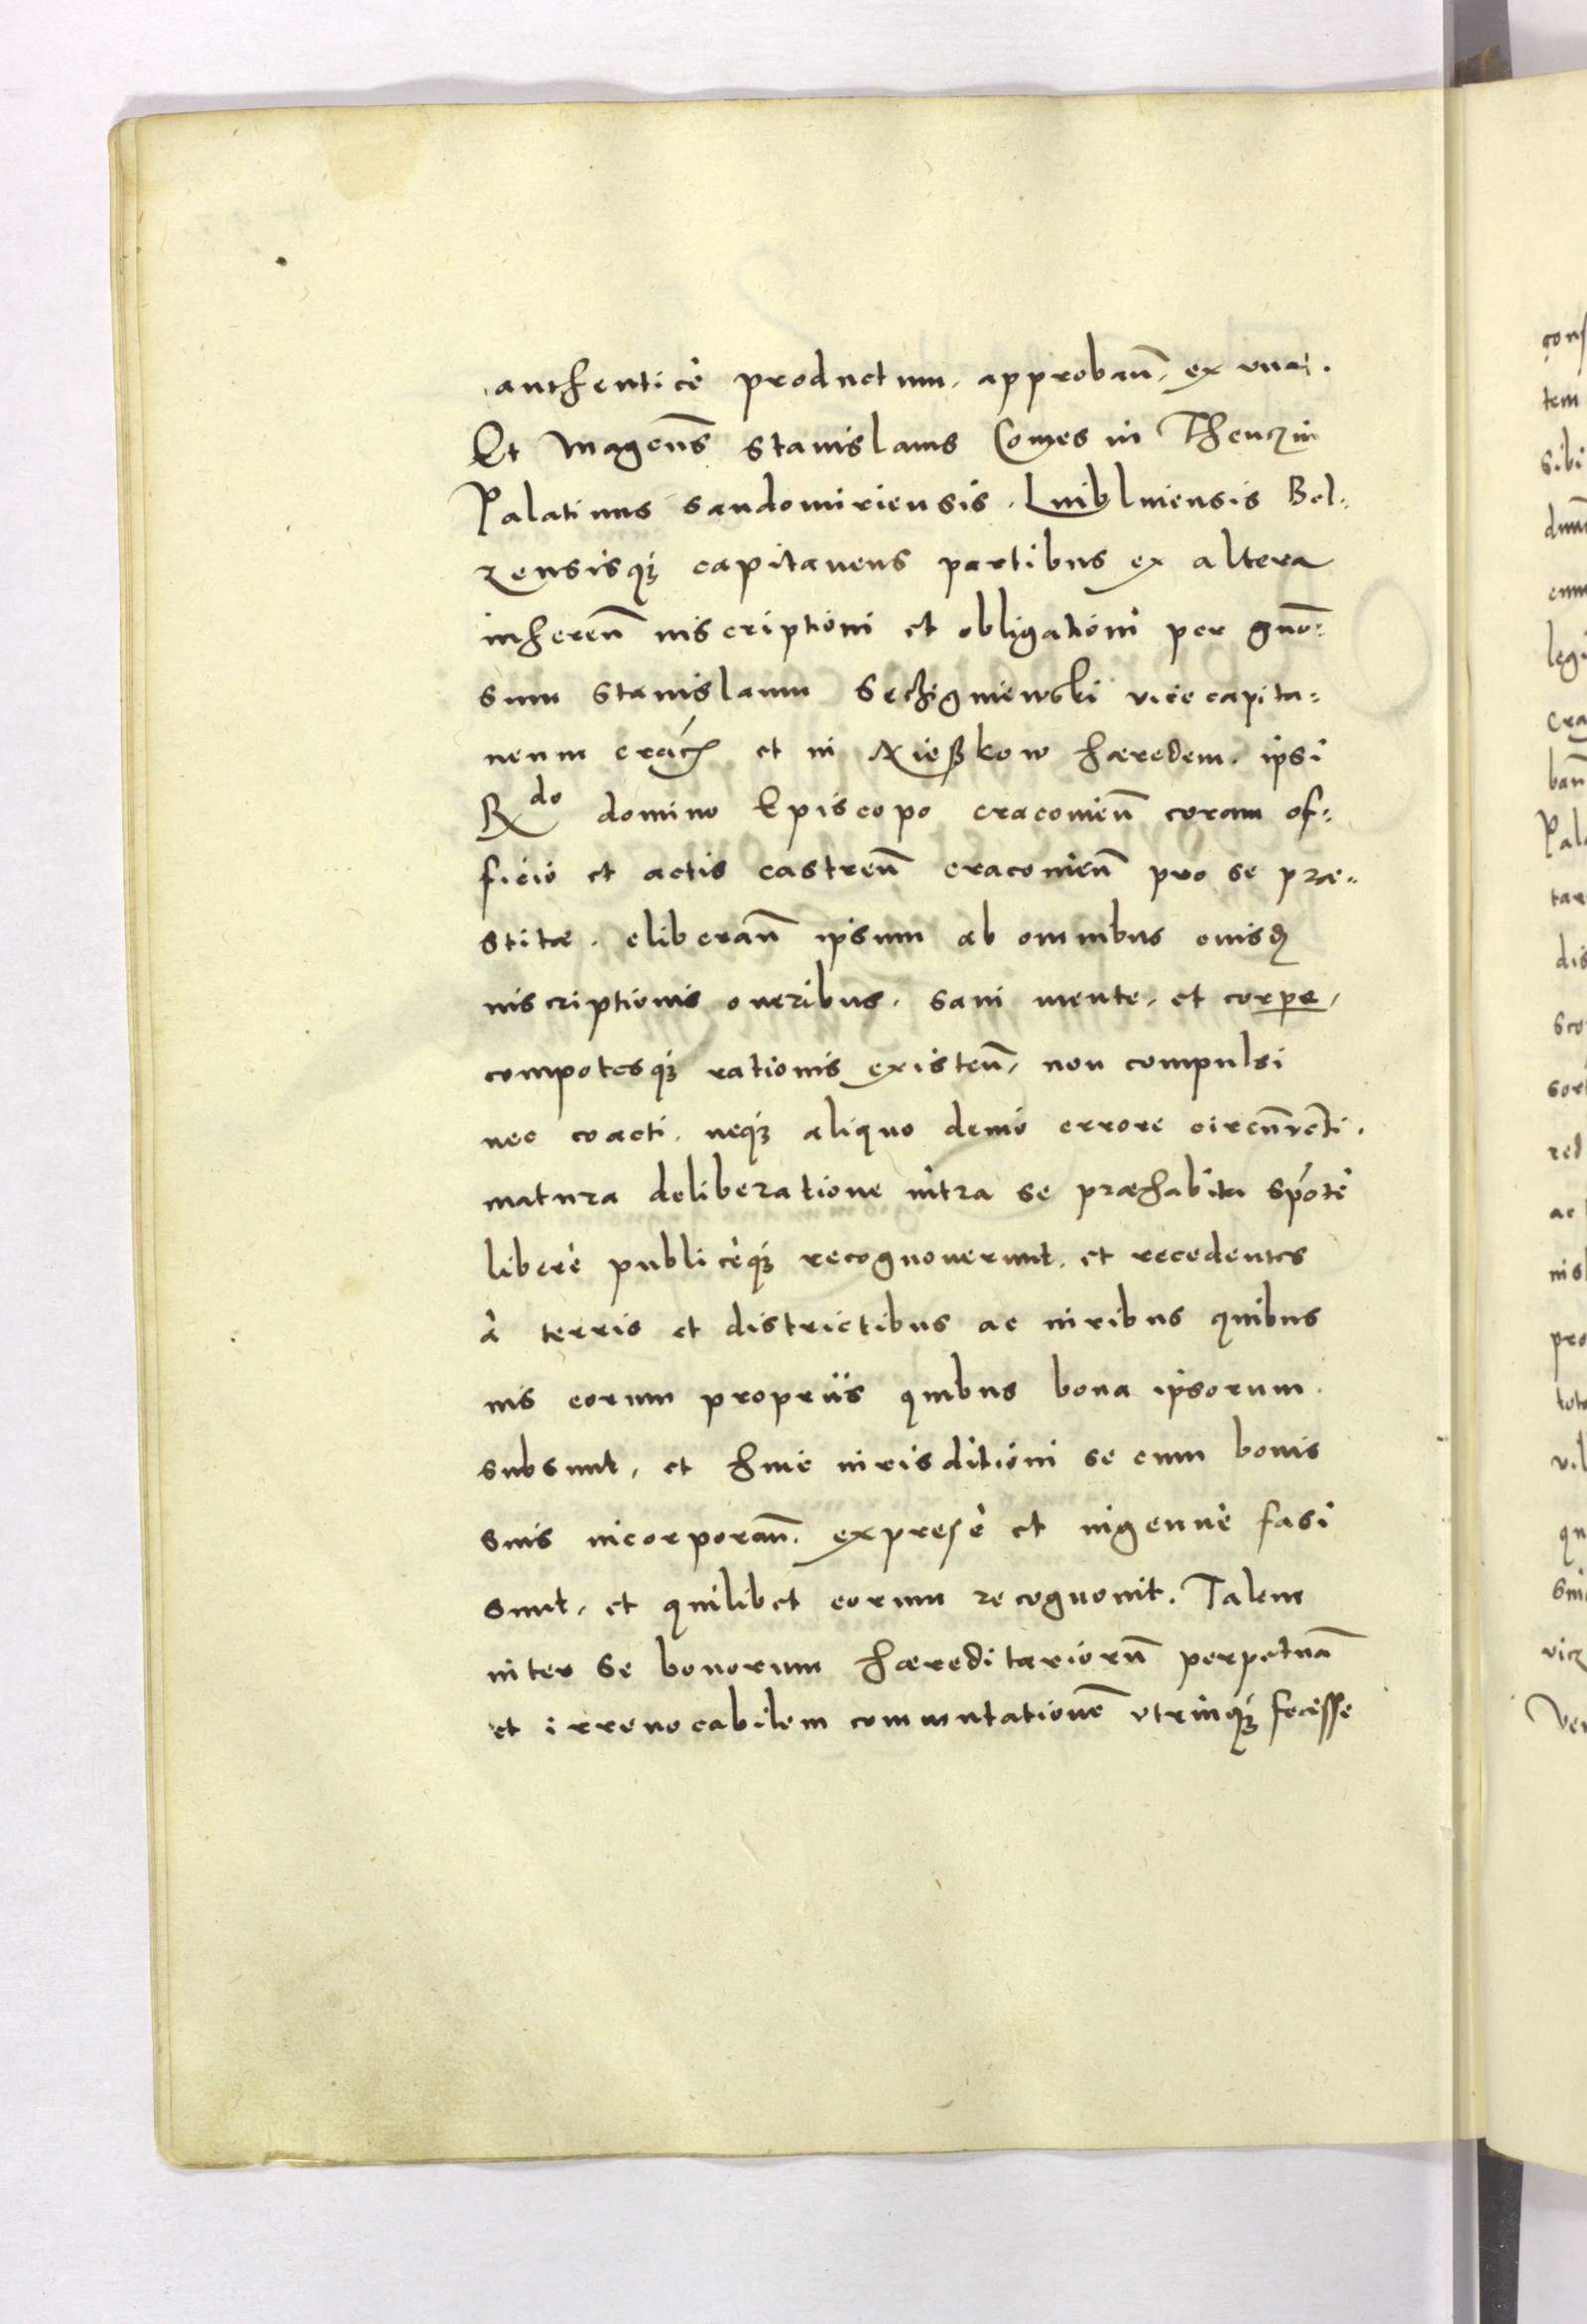 authenticè productum. approbañ. ex vna.
Et Magcñs Stanislaus Comes in Thenczin
Palatinus Sandomiriensis. Lublinensis Bel=
zensisq́ꝫ capitaneus partibus ex altera
inhereñ inscriptioni et obligationi per gño=
sum Stanislaum Sechigniewski vicecapita=
neum cracꝫ et in Xießkow hæredem. ipsi
Rdo domino Episcopo cracovieñ coram of=
ficio et actis castreñ cracovieñ pro se præ=
stitæ. eliberañ ipsum ab omnibus ouisđ
inscriptionis oneribus. Sani mente. et corpe.
compotesq́ꝫ rationis existeñ. non compulsi
nec coacti. neq́ꝫ aliquo deuio errore circũuẽti.
matura deliberatione intra se præhabita spõtè
liberè publicèq́ꝫ recognouerunt. et recedentes
à terris et districtibus ac iuribus quibus
uis eorum proprijs quibus bona ipsorum
subsunt. et huic iurisditioni se cum bonis
suis incorporañ. expresè et ingenuè fasi
sunt. et quilibet eorum recognouit. Talem
inter se bonorum hæreditariorũ perpetuã
et irreuocabilem commutationẽ vtrinq́ꝫ fecisse
cons
tem
sibi
legi
Cra
Pala
tar
dis
sco
red
ac
pro
vil
qu